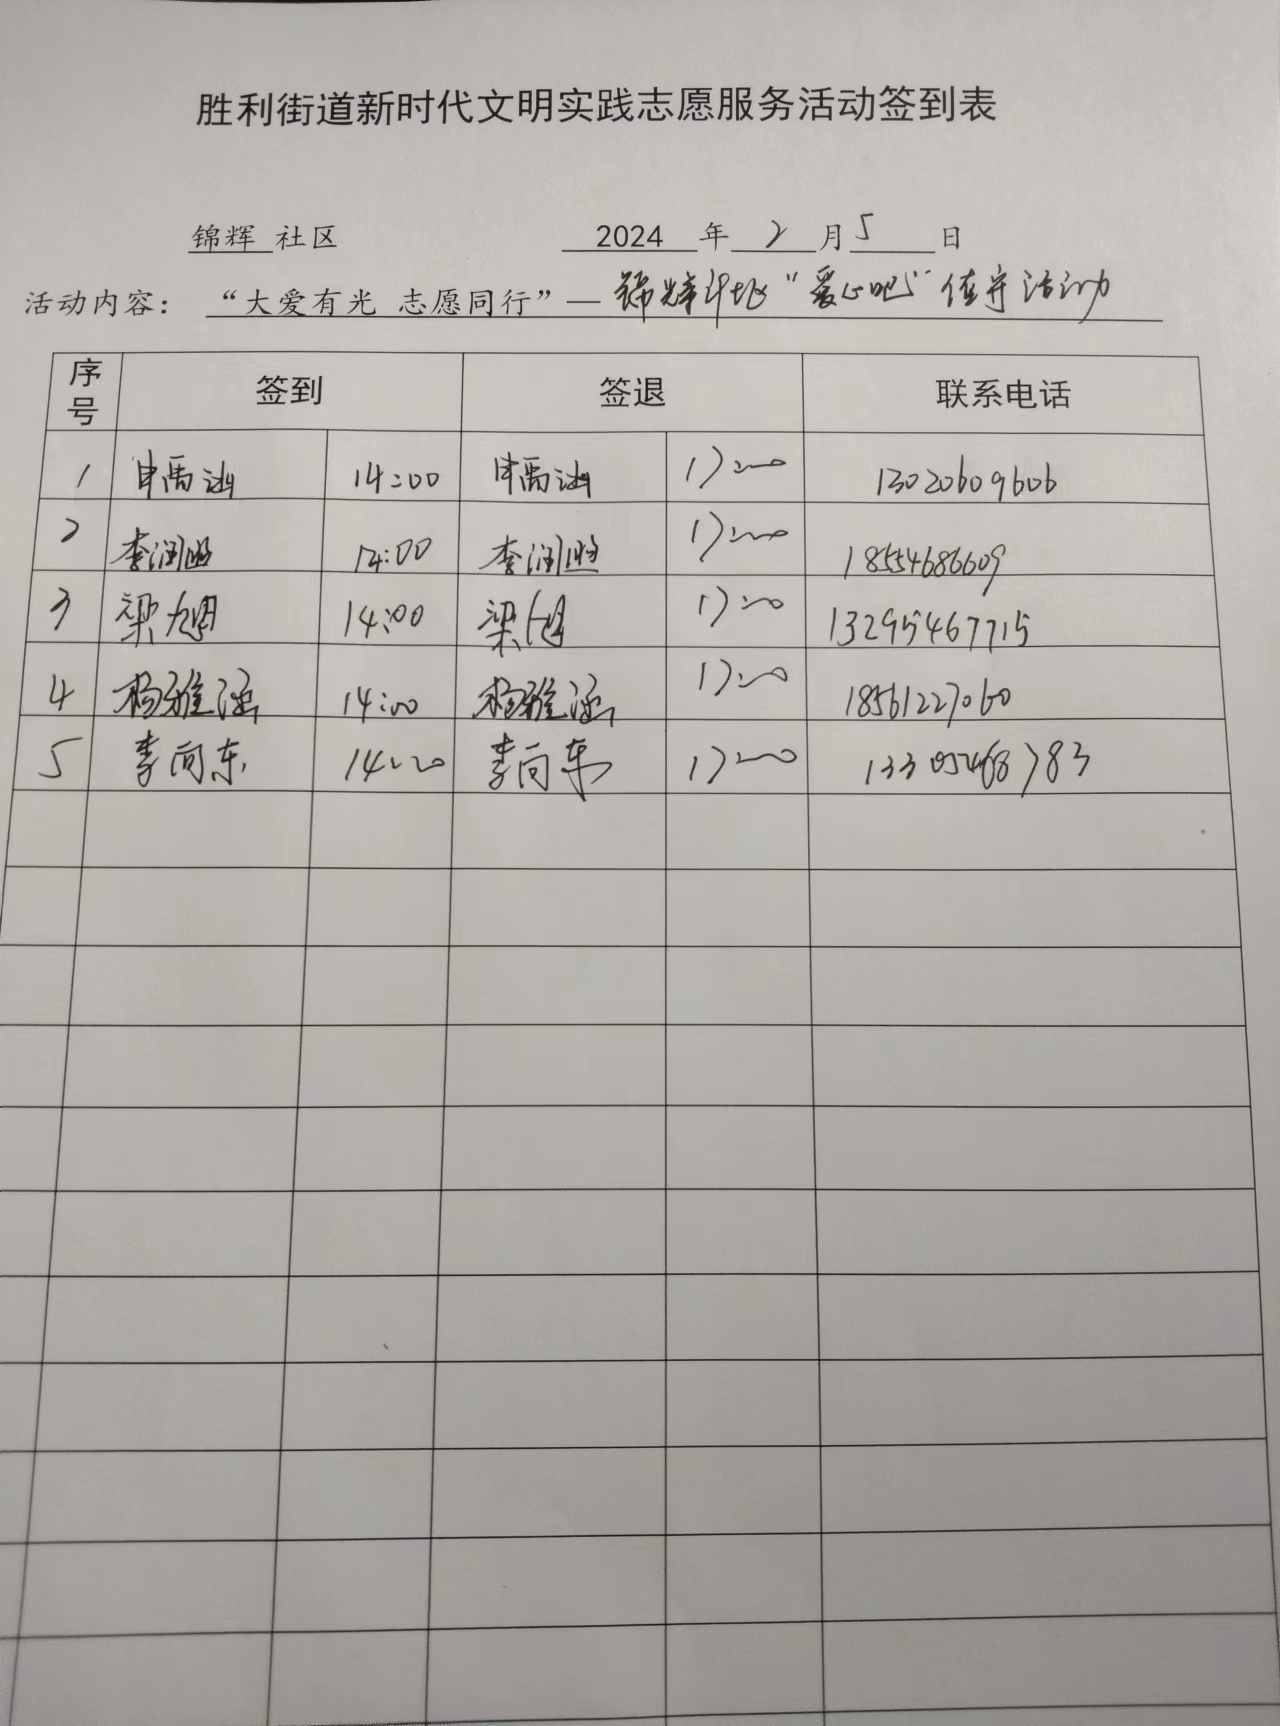 胜利街道新时代文明实践志愿服务活动签到表
锦辉 社区 2024 年 2 月 5 日
活动内容： “大爱有光 志愿同行”— 锦辉社区“爱心吧”值守活动
序号 签到 签退 联系电话
1 申禹汕 14:00 申禹汕 17:00 13020609606
2 李润照 14:00 李润照 17:00 18554686609
3 梁旭 14:00 梁旭 17:00 13295467715
4 杨雅涵 14:00 杨雅涵 17:00 18561227060
5 李向东 14:00 李向东 17:00 13305468783